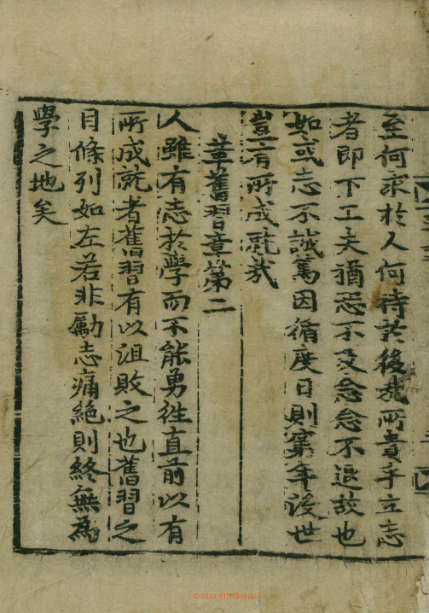 至何求於人何待於後哉所貴乎立志
者即下工夫猶恐不及念念不退故也
如或志不誠篤因循度日則窮年沒世
豈有所成就哉
革舊習章第二
人雖有志於學而不能勇往直前以有
所成就者舊習有以沮敗之也舊習之
目條列如左若非勵志痛絶則終無為
學之地矣